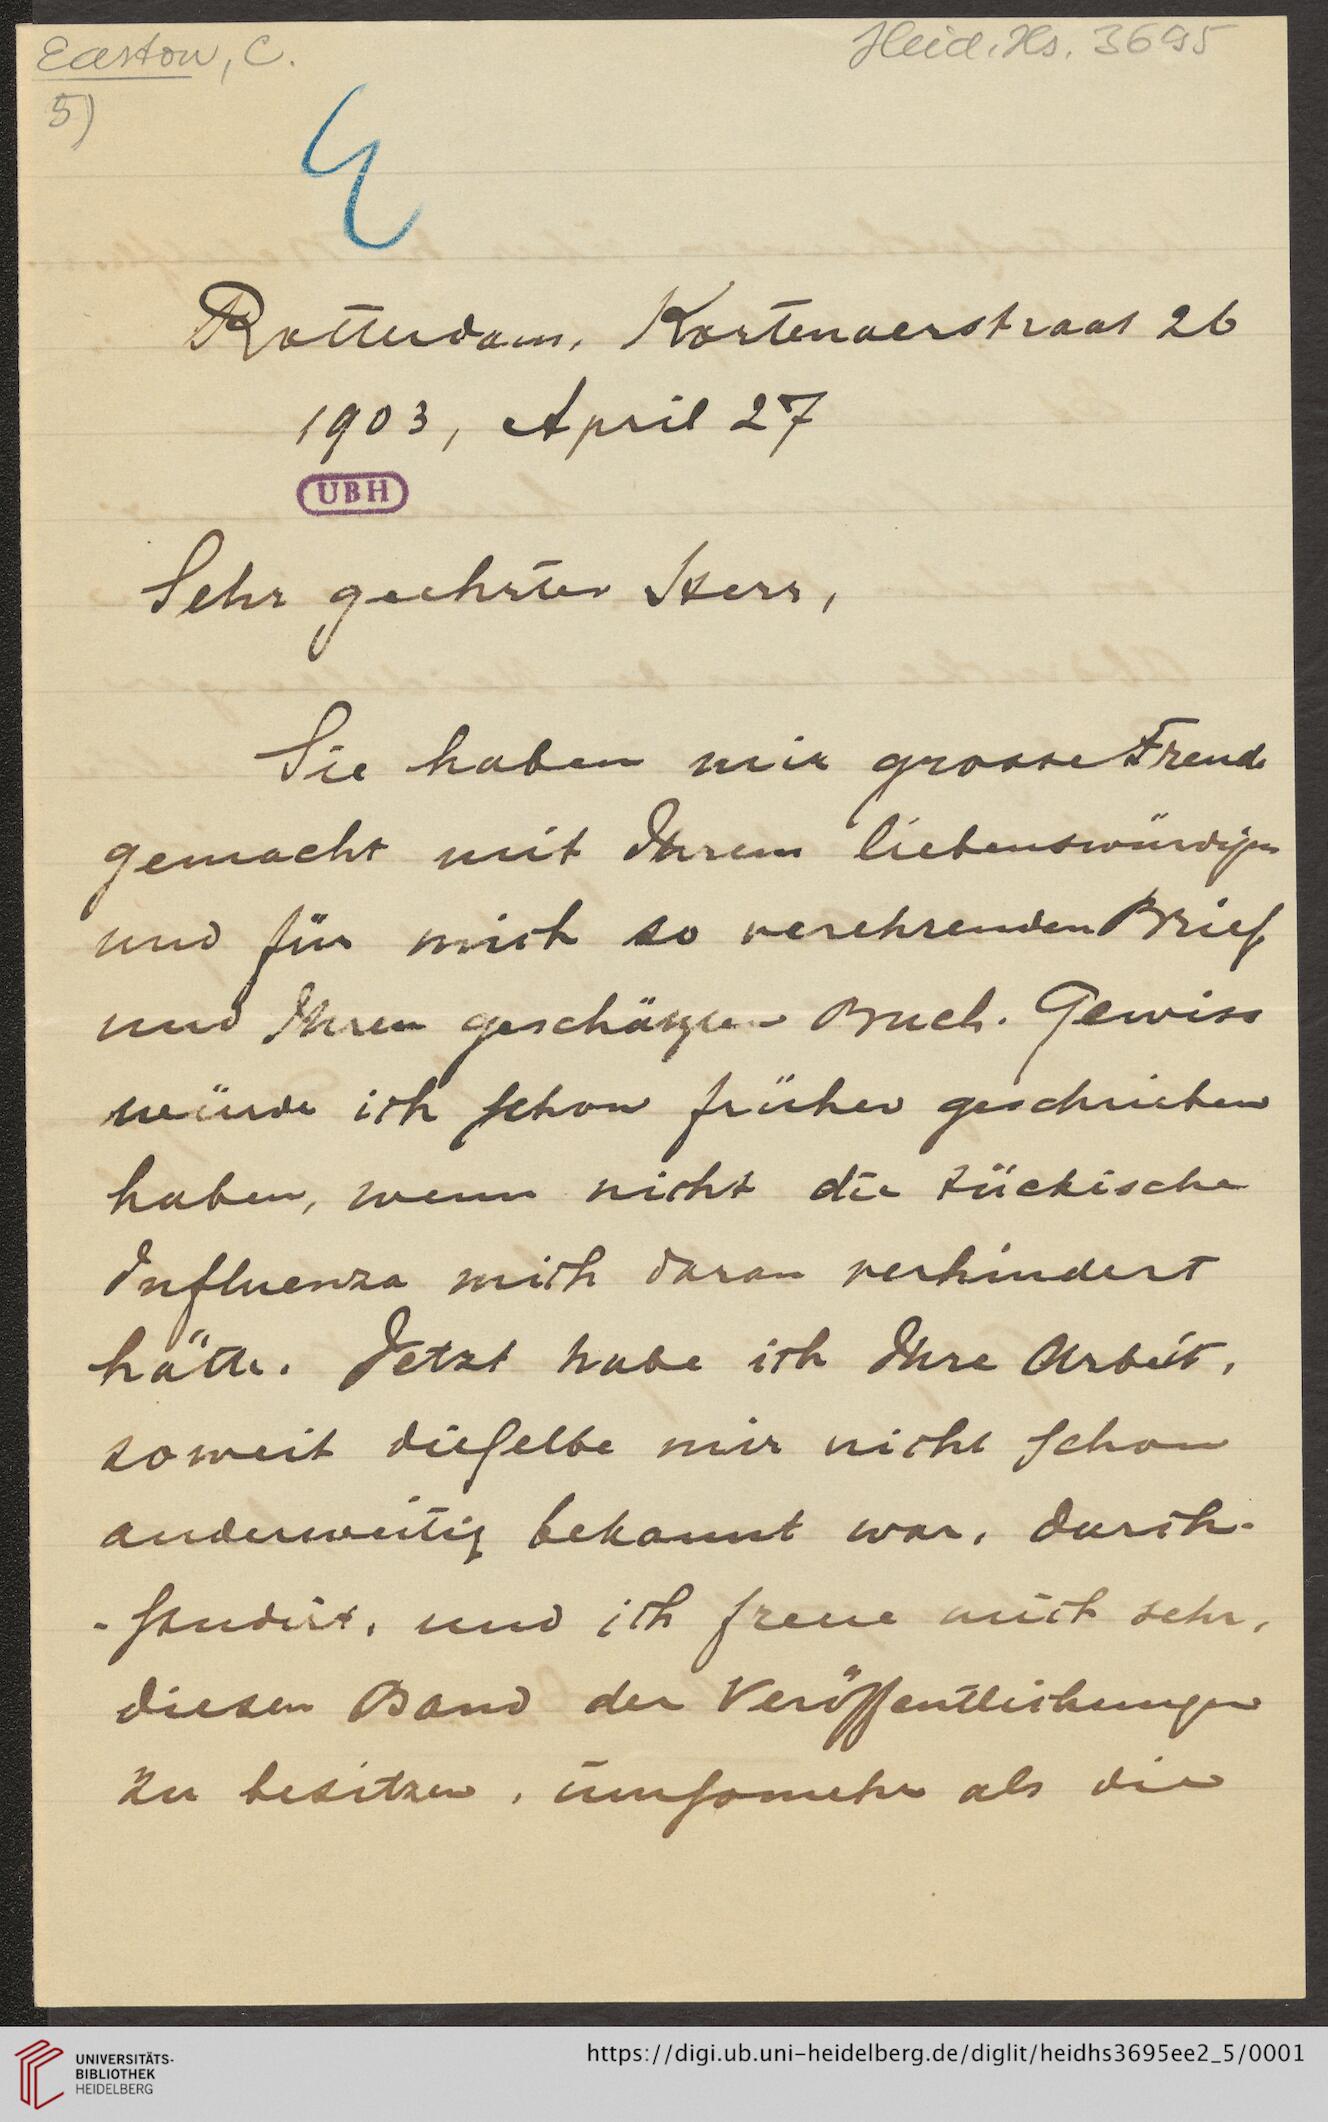 Easton, C.
Heid. Hs. 3695
5)
E
Rotterdam, Kortenaerstraat 26
1903, April 27
UBH
Sehr geehrter Herr,
Sie haben mir grosse Freude
gemacht mit Ihrem liebenswürdigen
und für mich so verehrenden Brief
und Ihren geschätzten Buch. Gewiss
würde ich schon früher geschrieben
haben, wenn nicht die tückische
Influenza mich daran verhindert
hätte. Jetzt habe ich Ihre Arbeit,
soweit dieselbe mir nicht schon
anderweitig bekannt war, durch-
-studirt, und ich freue mich sehr,
diesen Band der Veröffentlichungen
zu besitzen, umsomehr als die
UNIVERSITÄTS-
BIBLIOTHEK
HEIDELBERG
https://digi.ub.uni-heidelberg.de/diglit/heidhs3695ee2_5/0001